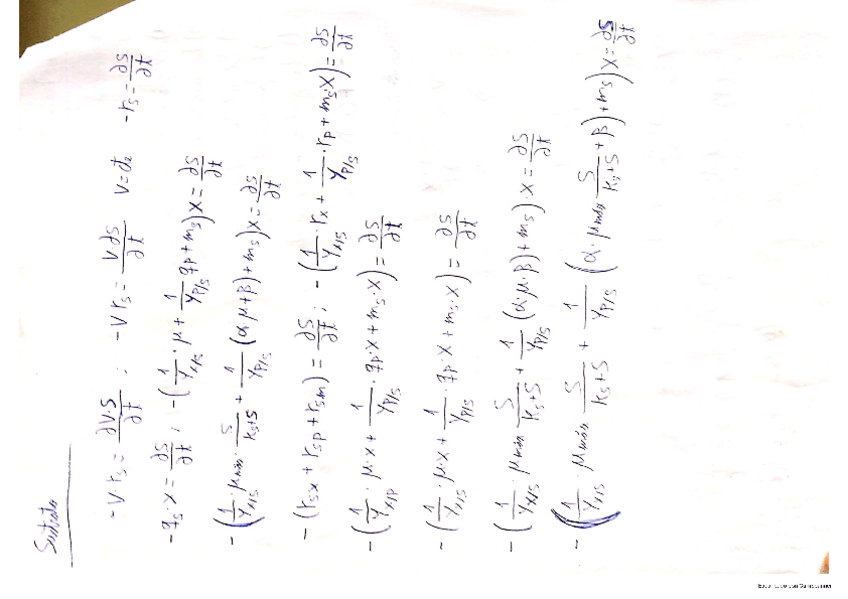 Sustrato
-V·rs = ∂V·S/∂t ; -V rs = V∂S/∂t V=cte -rs = ∂S/∂t
-qs·X = ∂S/∂t ; -(1/Yx/s · μ + 1/Yp/s qp + ms)X = ∂S/∂t
-(1/Yx/s · μmáx · S/Ks+S + 1/Yp/s (α·μ+β)+ms)X = ∂S/∂t
-(rsx + rsp + rsm) = ∂S/∂t ; -(1/Yx/s · rx + 1/Yp/s · rp + ms·X) = ∂S/∂t
-(1/Yx/p · μ·X + 1/Yp/s · qp·X + ms·X) = ∂S/∂t
-(1/Yx/s · μ·X + 1/Yp/s · qp·X + ms·X) = ∂S/∂t
-(1/Yx/s · μmáx S/Ks+S + 1/Yp/s (α·μ·β)+ms)·X = ∂S/∂t
-(1/Yx/s · μmáx S/Ks+S + 1/Yp/s (α·μmáx S/Ks+S + β)+ms)X = ∂S/∂t